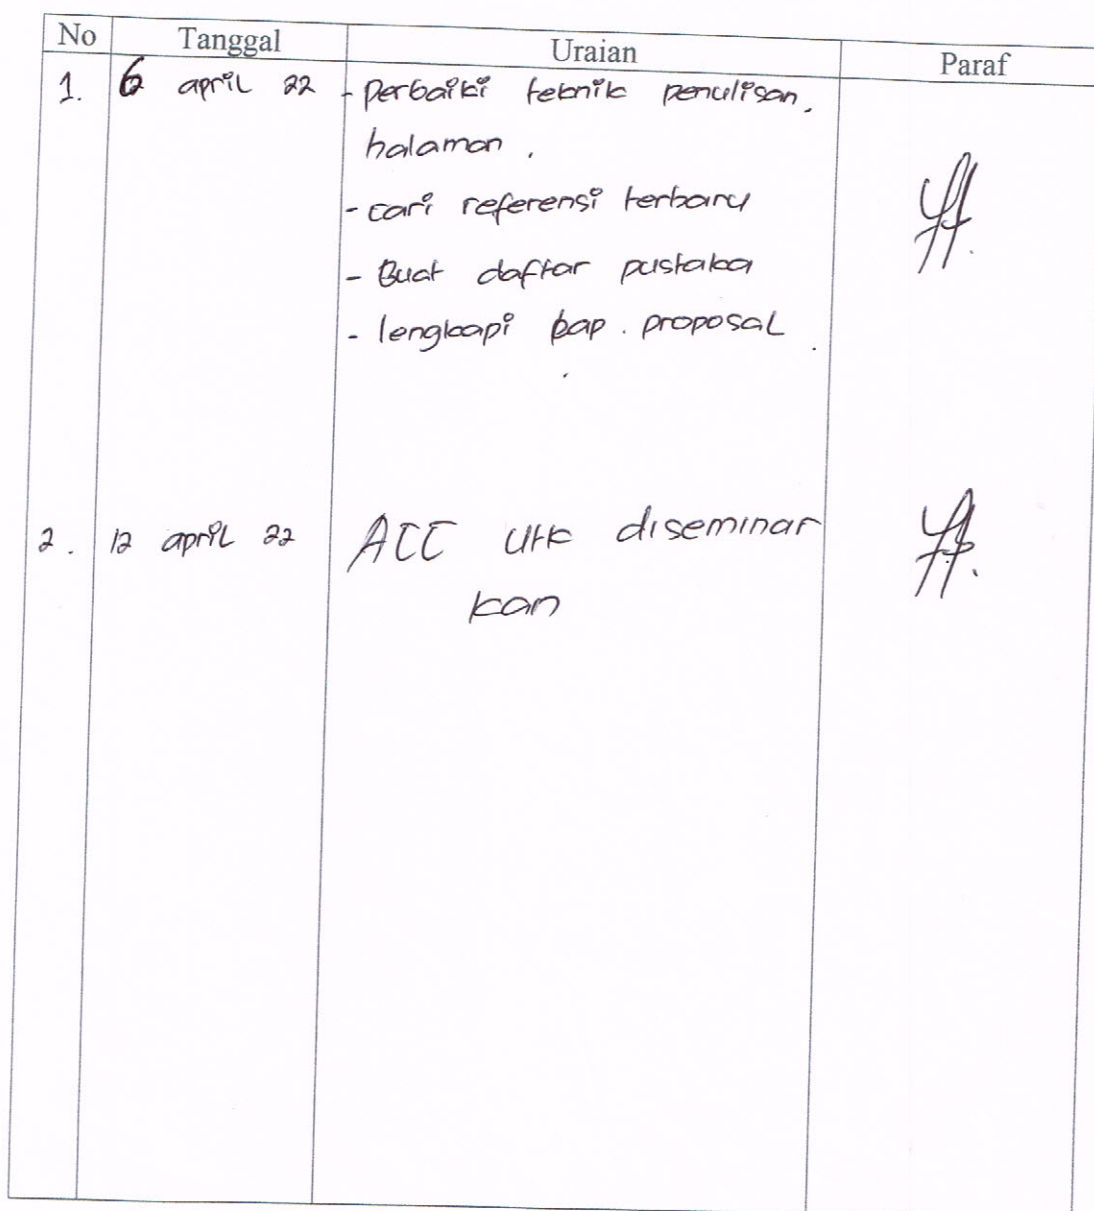 No Tanggal Uraian Paraf
1. 6 april 22 - Perbaiki teknik penulisan,
halaman.
- cari referensi terbaru
- Buat daftar pustaka
- lengkapi bap. proposal.
2. 12 april 22 ACC utk diseminar
kan